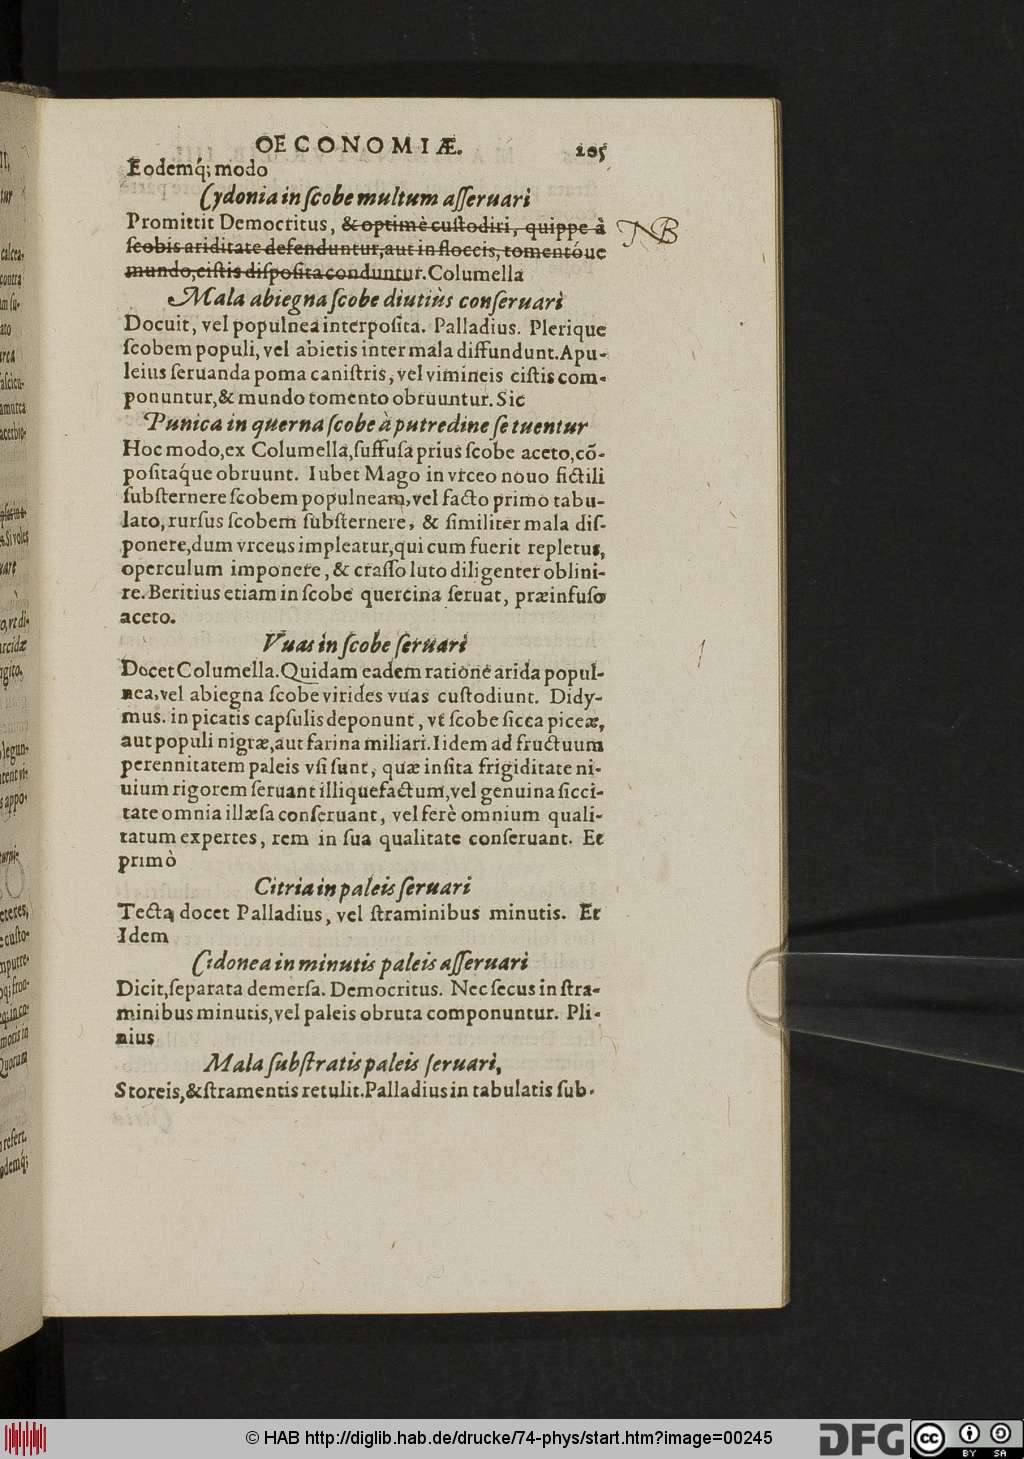 OECONOMIÆ. 105
Eodemq́; modo
Cydonia in ſcobe multum aſſeruari
Promittit Democritus, & optimè cuſtodiri, quippe à
ſcobis ariditate defenduntur, aut in floccis, tomentóue
mundo, ciſtis diſpoſita conduntur. Columella
NB
Mala abiegna ſcobe diutiùs conſeruari
Docuit, vel populnea interpoſita. Palladius. Plerique
ſcobem populi, vel abietis inter mala diffundunt. Apu-
leius ſeruanda poma caniſtris, vel vimineis ciſtis com-
ponuntur, & mundo tomento obruuntur. Sic
Punica in querna ſcobe à putredine ſe tuentur
Hoc modo, ex Columella, ſuffuſa prius ſcobe aceto, cō-
poſitaq́ue obruunt. Iubet Mago in vrceo nouo fictili
ſubſternere ſcobem populneam, vel facto primo tabu-
lato, rurſus ſcobem ſubſternere, & ſimiliter mala diſ-
ponere, dum vrceus impleatur, qui cum fuerit repletus,
operculum imponere, & craſſo luto diligenter oblini-
re. Beritius etiam in ſcobe quercina ſeruat, præinfuſo
aceto.
Vuas in ſcobe ſeruari
Docet Columella. Quidam eadem ratione arida popul-
nea, vel abiegna ſcobe virides vuas cuſtodiunt. Didy-
mus. in picatis capſulis deponunt, vt ſcobe ſicca piceæ,
aut populi nigræ, aut farina miliari. Iidem ad fructuum
perennitatem paleis vſi ſunt, quæ inſita frigiditate ni-
uium rigorem ſeruant illiquefactum, vel genuina ſicci-
tate omnia illæſa conſeruant, vel ferè omnium quali-
tatum expertes, rem in ſua qualitate conſeruant. Et
primò
Citria in paleis ſeruari
Tecta docet Palladius, vel ſtraminibus minutis. Et
Idem
Cidonea in minutis paleis aſſeruari
Dicit, ſeparata demerſa. Democritus. Nec ſecus in ſtra-
minibus minutis, vel paleis obruta componuntur. Pli-
nius
Mala ſubſtratis paleis ſeruari,
Storeis, & ſtramentis retulit. Palladius in tabulatis ſub-
© HAB http://diglib.hab.de/drucke/74-phys/start.htm?image=00245
DFG
cc BY SA